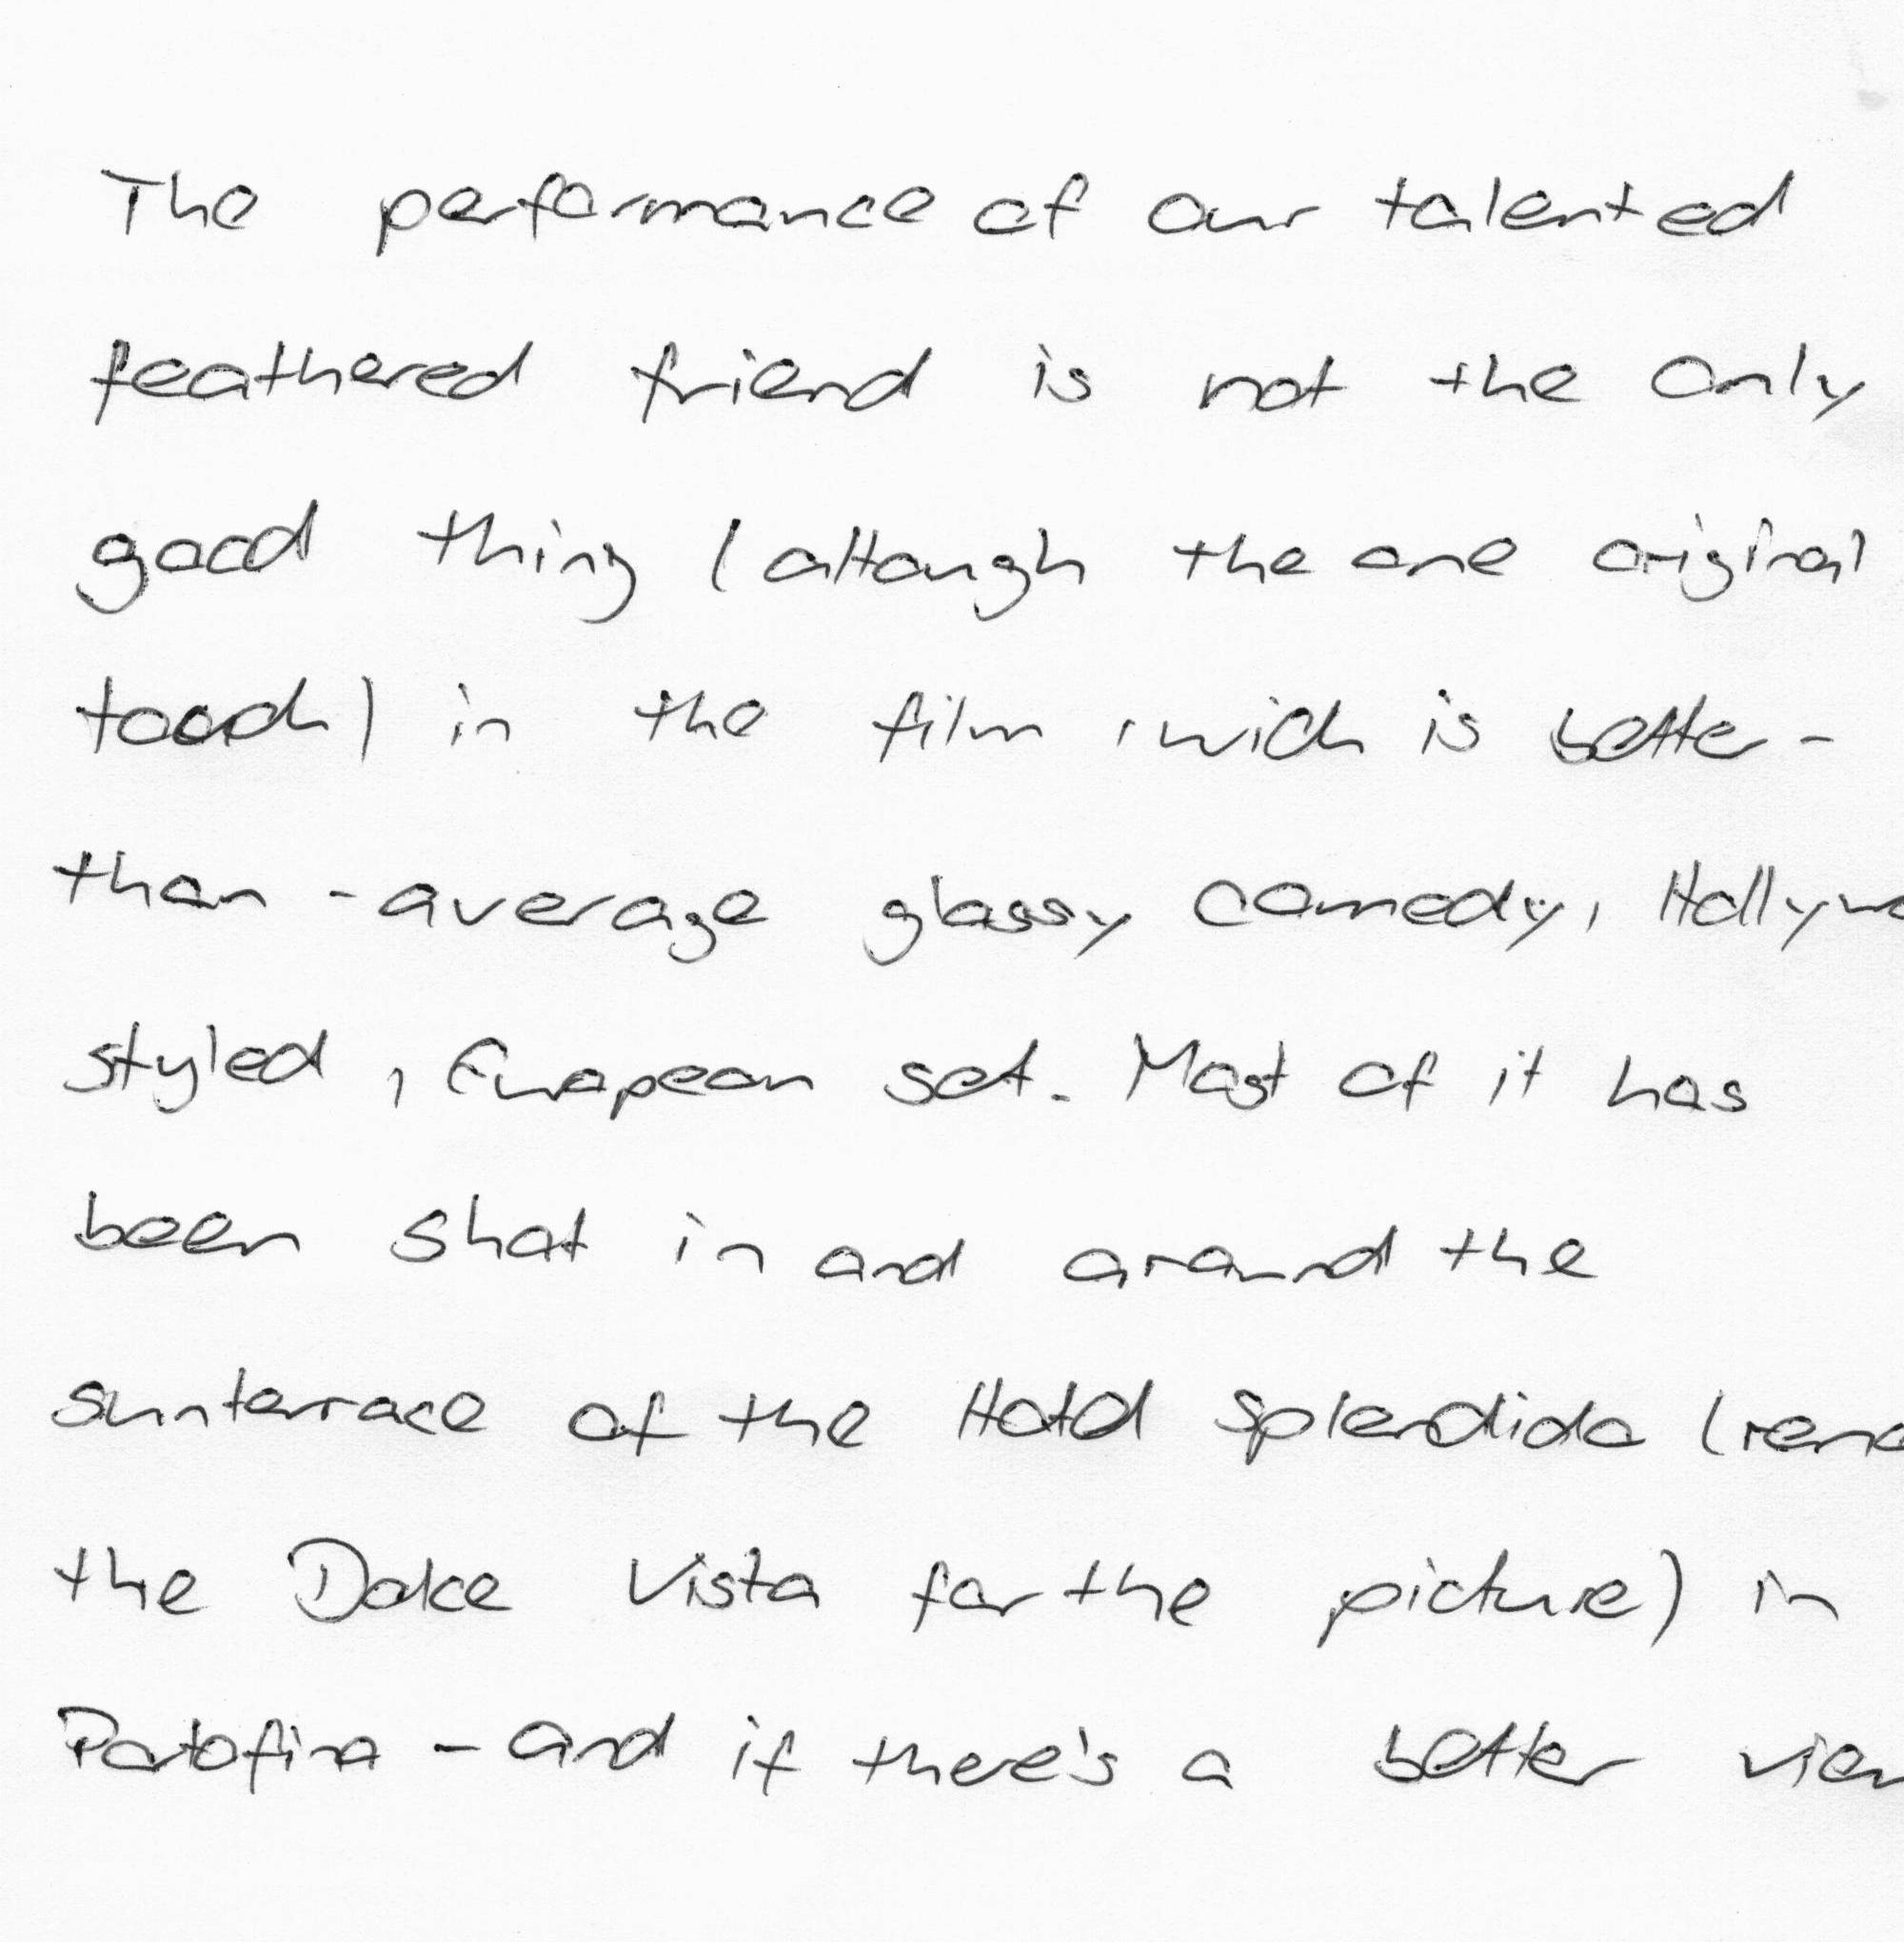 The performance of our talented
feathered friend is not the only
good thing (altough the one original
toouch) in the film, wich is better-
than-average glossy comedy, Hollywo
styled, European set. Most of it has
been shot in and around the
sunterrace of the Hotel splendido (rena
the Dolce Vista for the picture) in
Portofino - and if there's a better view